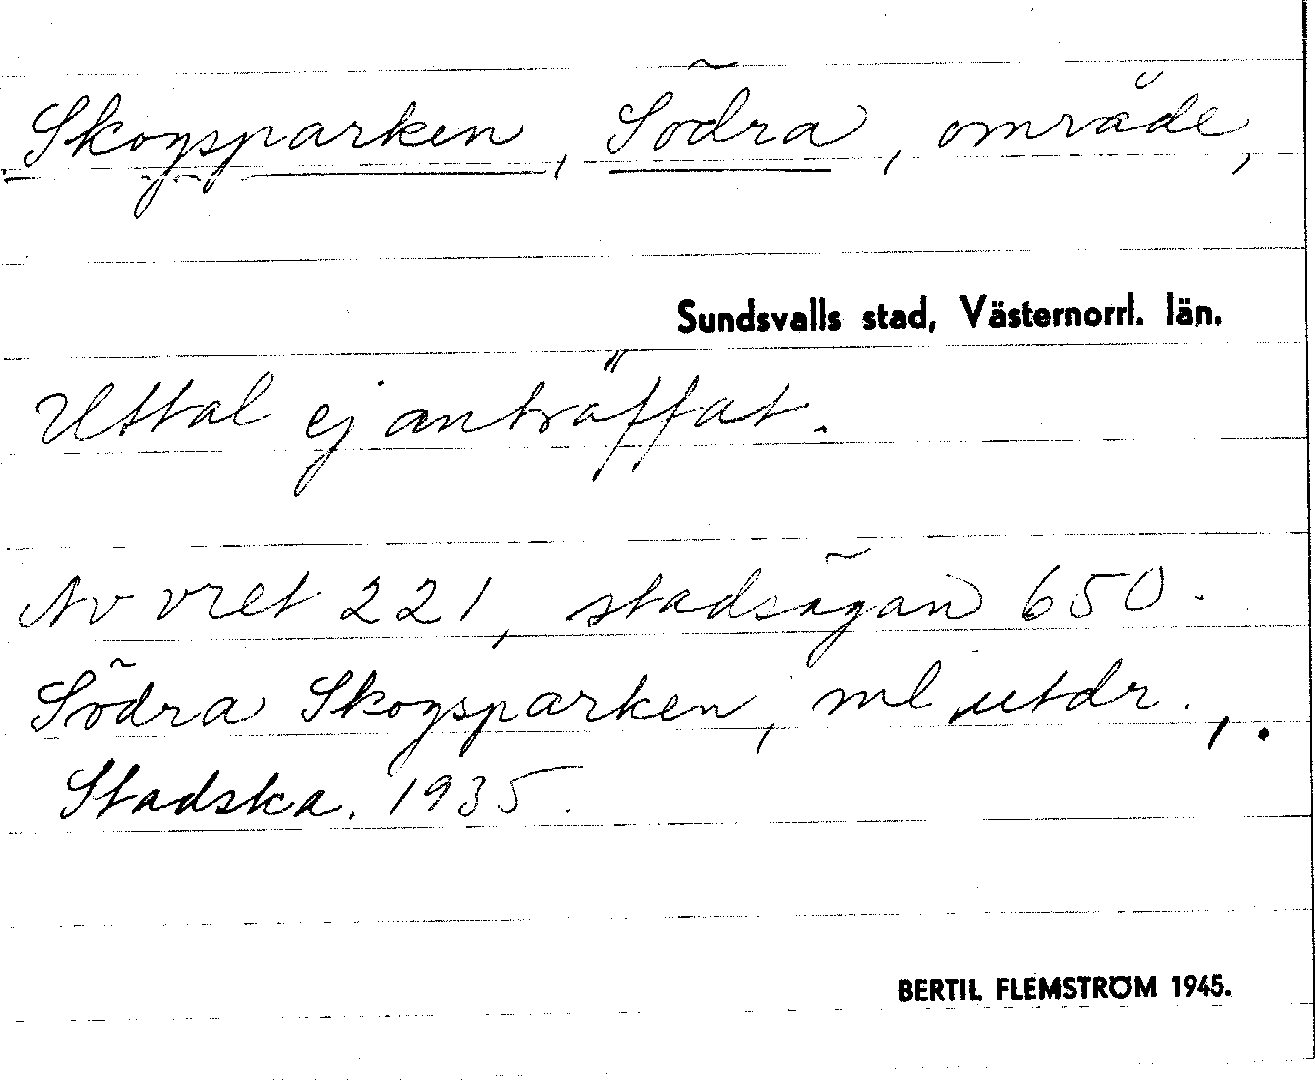 Skogsparken, Södra, område,
Sundsvalls stad, Västernorrl. län.
Uttal ej anträffat.
Av vret 221, stadsägan 650.
Södra Skogsparken, ml utdr.,.
Stadska. 1935.
BERTIL FLEMSTRÖM 1945.